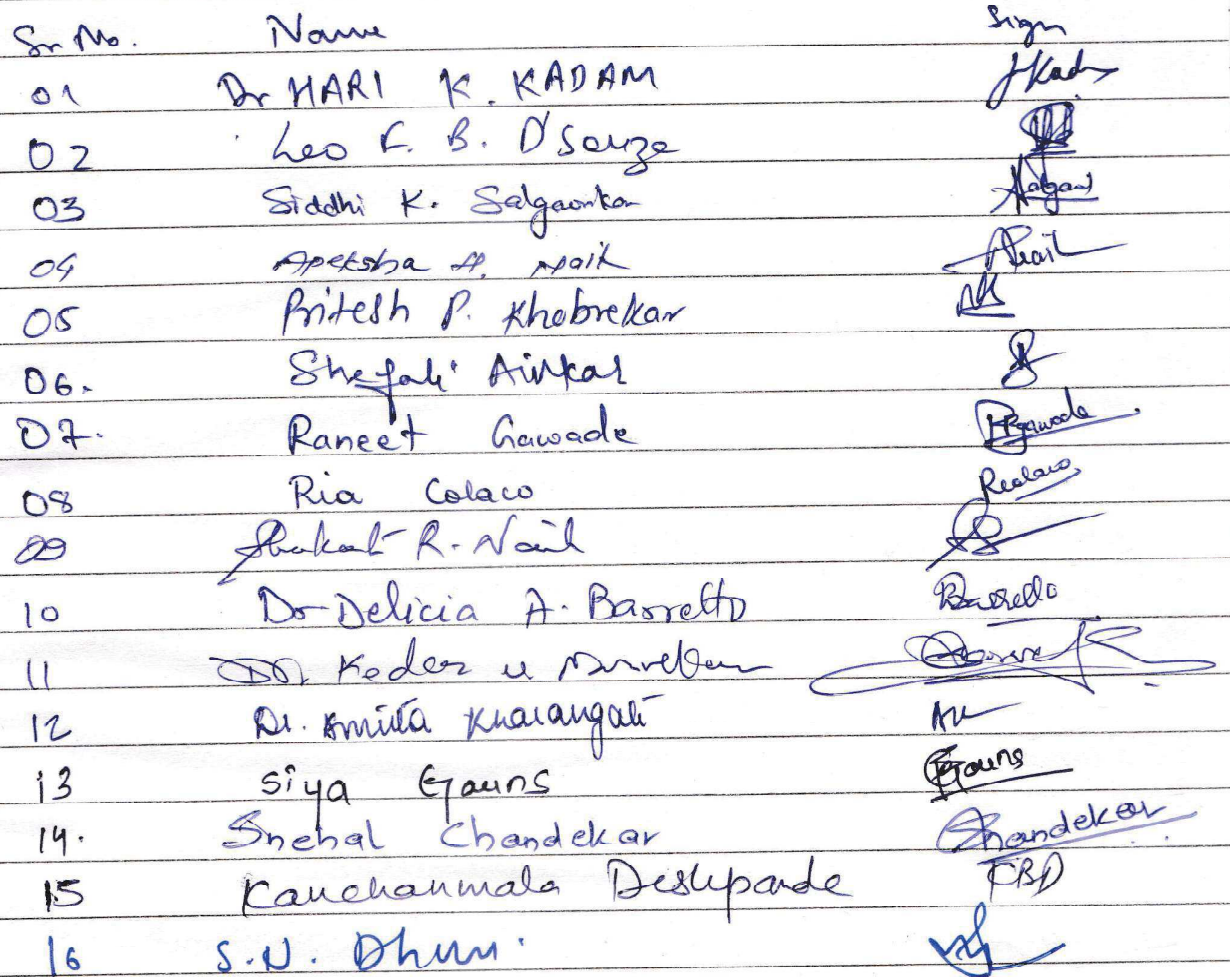 Sr. No. Name Sign
01 Dr HARI K. KADAM JKadam
02 Leo F. B. D'Souza
03 Siddhi K. Salgaonkar
04 Apeksha A. Naik Anaik
05 Pritesh P. Khobrekar
06. Shefali Airkar
07. Raneet Gawade RPgawade
08 Ria Colaco Rcolaco
09 R. Naik
10 Dr Delicia A. Barretto Barretto
11 Dr Kedar U
12 Dr. Amita Kharangate AK
13 Siya Gauns Gauns
14. Snehal Chandekar Chandekar
15 Kanchanmala Deshpande KBD
16 S.N. Dhuri.